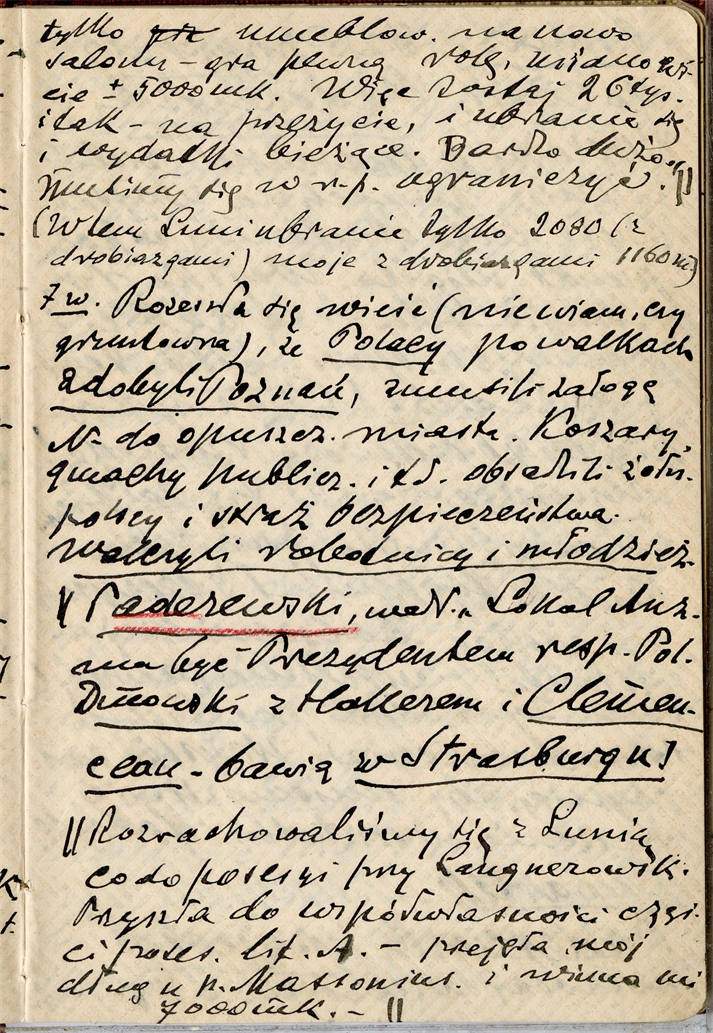 tylko umeblow. na nowo
salonu - gra pewną rolę, mianowi-
cie ± 5000 mk. Więc zostaj 26 tys.
i tak - na przeżycie, i ubranie się
i wydatki bieżące. Bardzo dużo,
musimy się w n. p. ograniczyć. ||
(W tem Luni ubranie tylko 2080 (z
drobiazgami) moje z drobiazgami 1160 m)
7 w. Rozeszła się wieść (nie wiem, czy
gruntowna), że Polacy po walkach
zdobyli Poznań, zmusili załogę
N. do opuszcz. miasta. Koszary,
gmachy publicz. i t d. obsadzili żołn.
polscy i straż bezpieczeństwa.
Walczyli robotnicy i młodzież.
|| Paderewski, wedł. „Lokal Anz.
ma być Prezydentem resp. Pol.
Dmowski z Hallerem i Clemen-
ceau - bawią w Strasburgu!
|| Rozrachowaliśmy się z Lunią
co do posesyi przy Langnerowsk.
Przyszła do współwłasności częś-
ci poses. lit. A. - przejęła mój
dług u p. Massonius. i winna mi
7000 mk. - ||